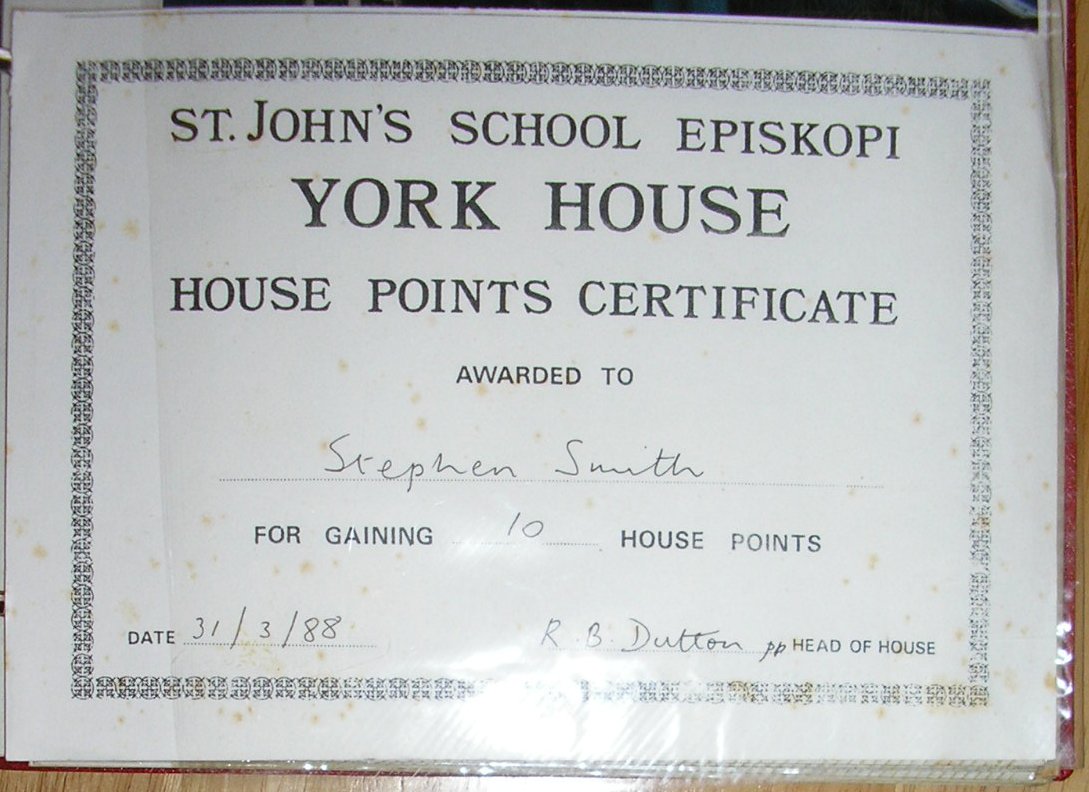 ST. JOHN'S SCHOOL EPISKOPI
YORK HOUSE
HOUSE POINTS CERTIFICATE
AWARDED TO
Stephen Smith
FOR GAINING 10 HOUSE POINTS
DATE 31/3/88 R. B. Dutton pp HEAD OF HOUSE